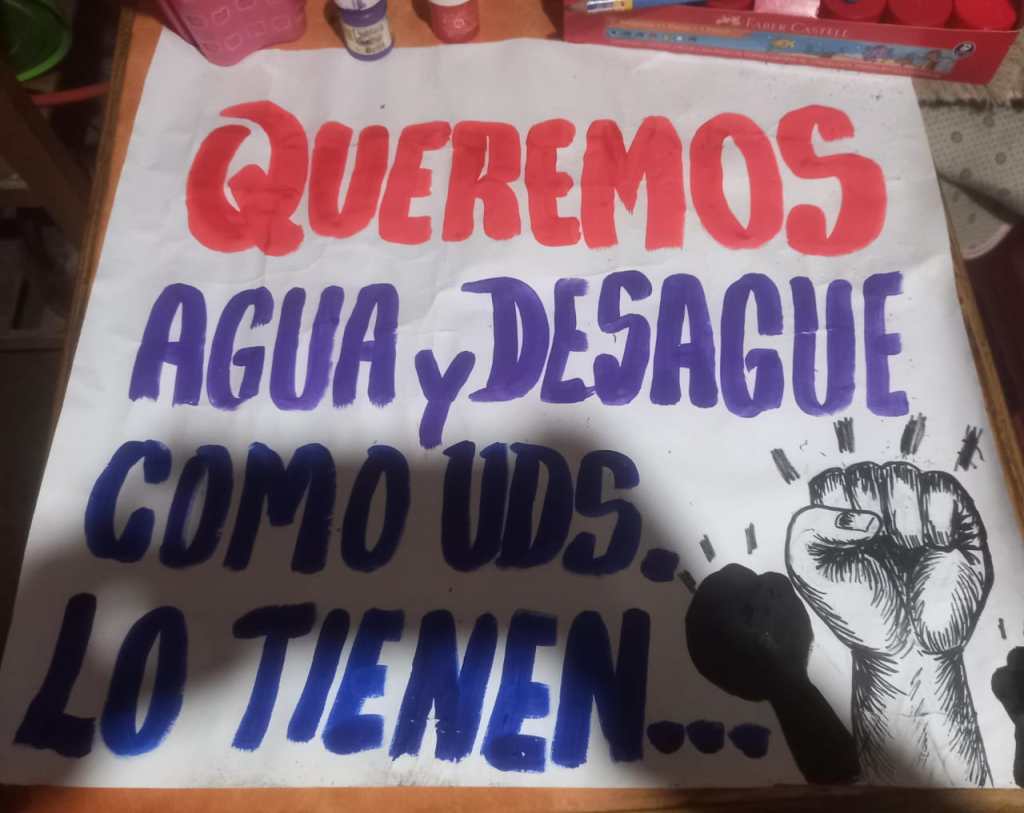 FABER CASTELL
QUEREMOS
AGUA Y DESAGUE
COMO UDS.
LO TIENEN...